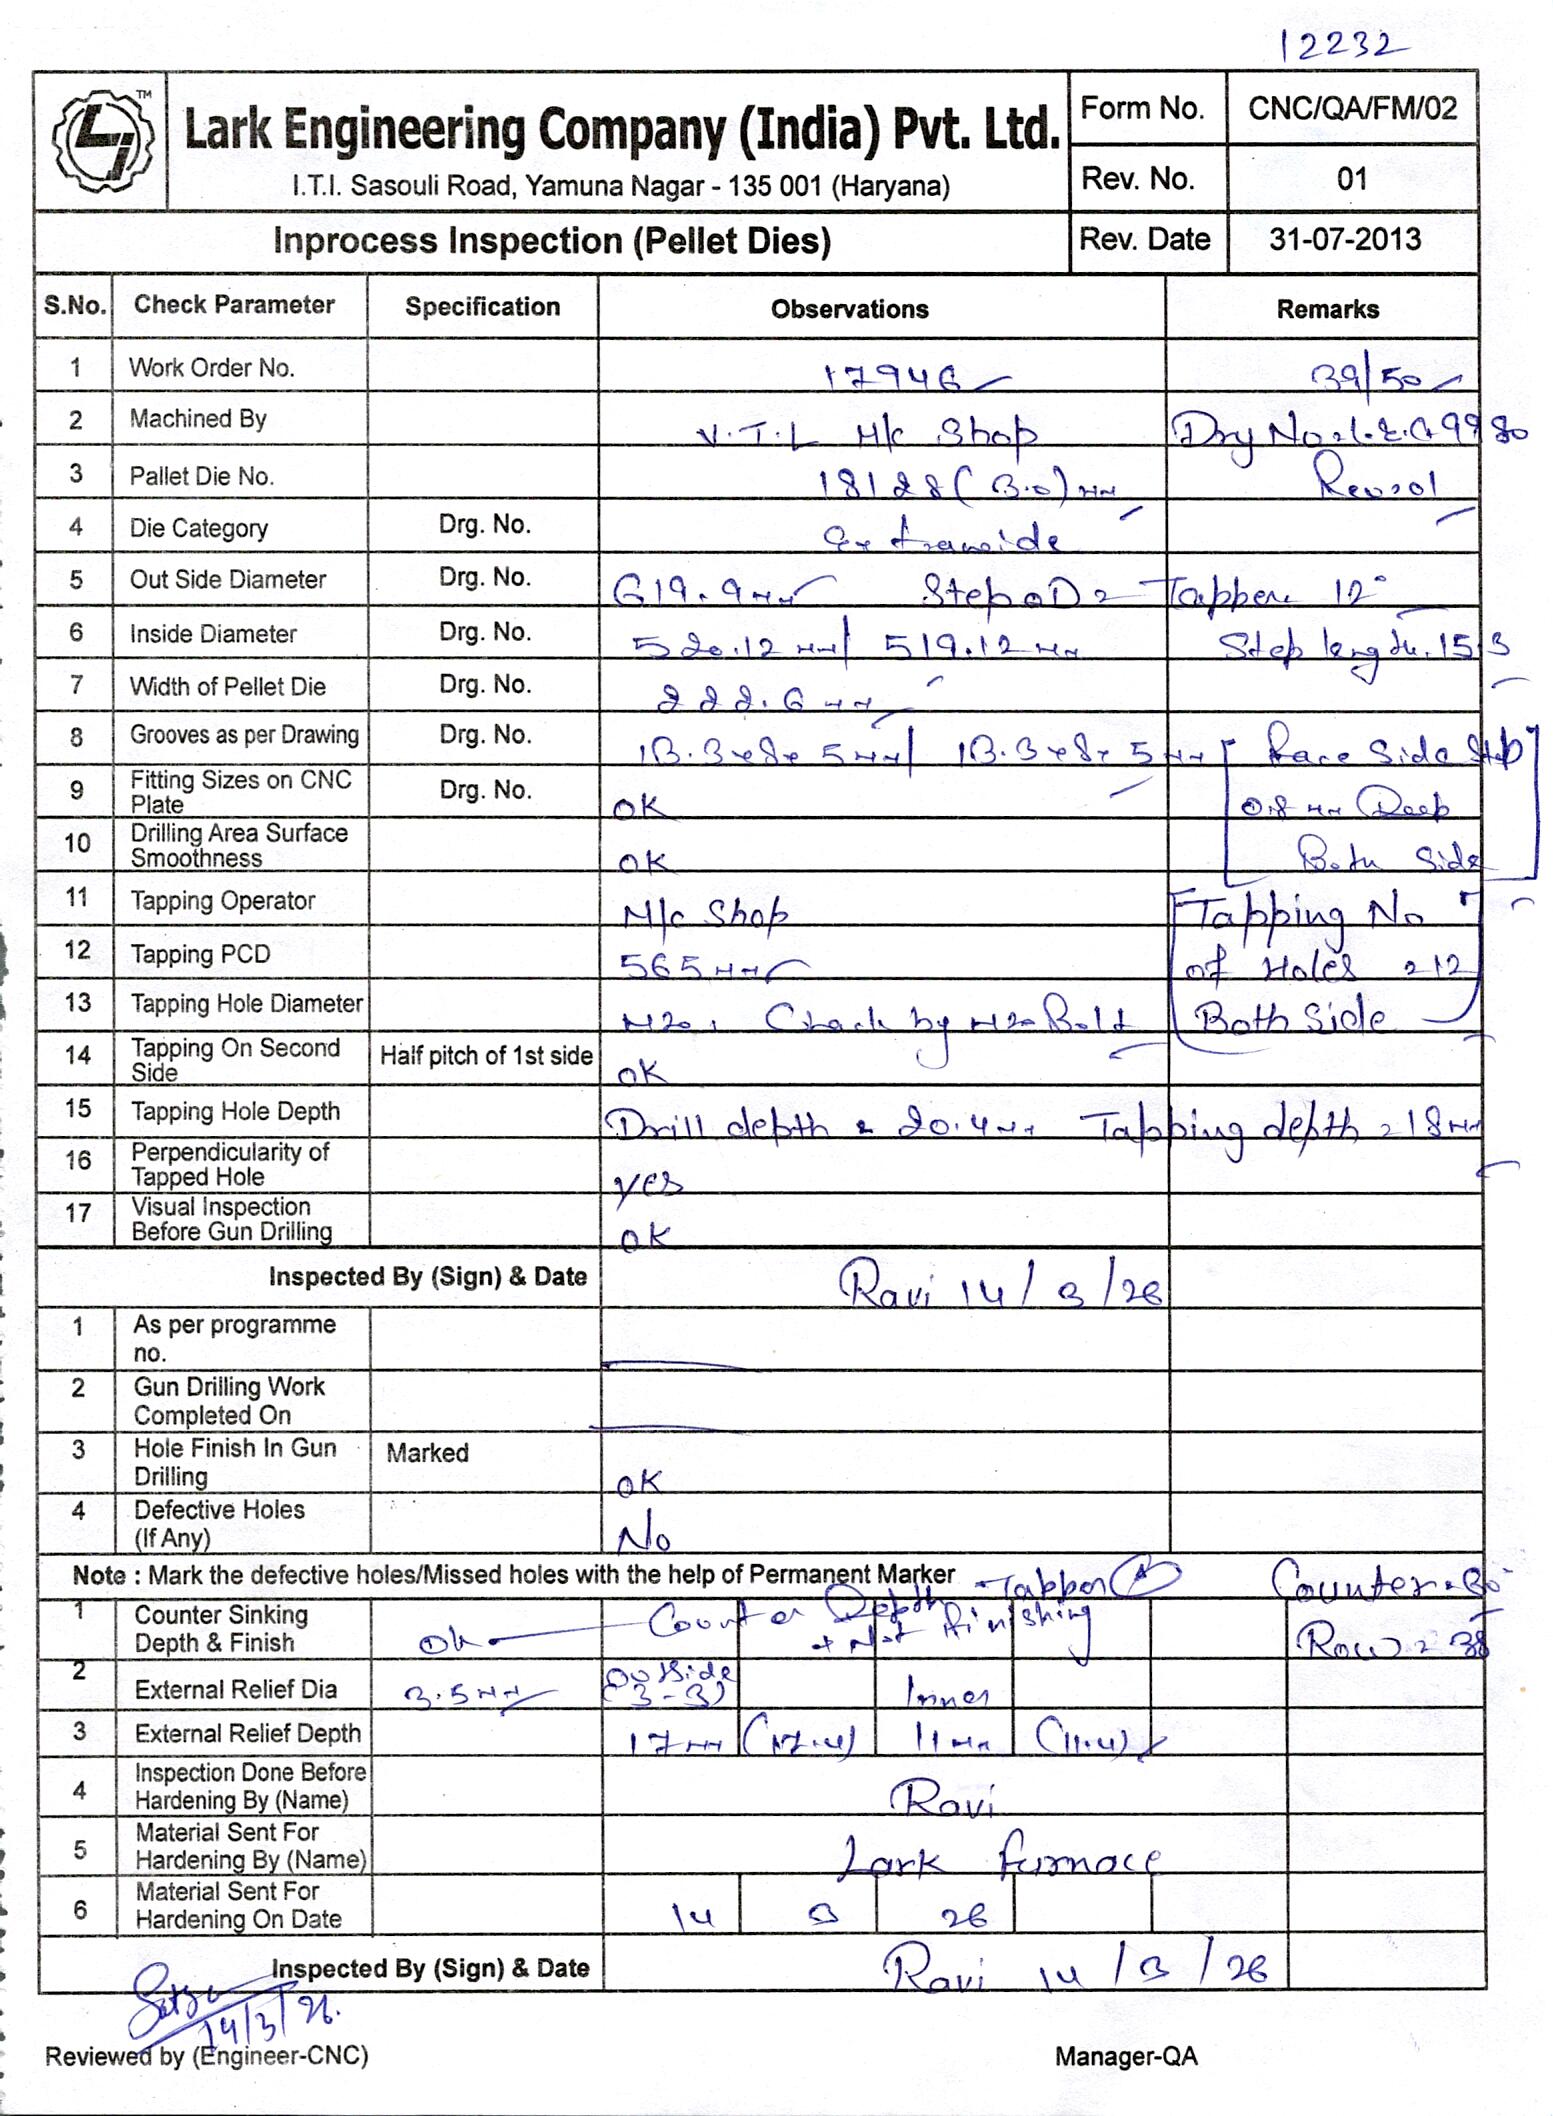 12232
TM
Lark Engineering Company (India) Pvt. Ltd.
I.T.I. Sasouli Road, Yamuna Nagar - 135 001 (Haryana)
Form No. CNC/QA/FM/02
Rev. No. 01
Inprocess Inspection (Pellet Dies) Rev. Date 31-07-2013
S.No. Check Parameter Specification Observations Remarks
1 Work Order No. 17946 39/50
2 Machined By V.T.L M/c Shop
3 Pallet Die No. 18128 (3.0) mm
4 Die Category Drg. No.
5 Out Side Diameter Drg. No. 619.9mm Step OD = Tapper 12°
6 Inside Diameter Drg. No. 520.12 mm / 519.12 mm Step length. 15.3
7 Width of Pellet Die Drg. No. 222.6 mm
8 Grooves as per Drawing Drg. No. 13.3x8x5mm / 13.3x8x5mm Side Step
9 Fitting Sizes on CNC Plate Drg. No. OK 0.8 mm Deep
10 Drilling Area Surface Smoothness OK Both Side
11 Tapping Operator M/c Shop Tapping No
12 Tapping PCD 565mm of Holes = 12
13 Tapping Hole Diameter M20, Check by M20 Bolt Both Side
14 Tapping On Second Side Half pitch of 1st side OK
15 Tapping Hole Depth Drill depth = 20.4mm Tapping depth = 18mm
16 Perpendicularity of Tapped Hole yes
17 Visual Inspection Before Gun Drilling OK
Inspected By (Sign) & Date Ravi 14/3/26
1 As per programme no.
2 Gun Drilling Work Completed On
3 Hole Finish In Gun Drilling Marked OK
4 Defective Holes (If Any) No
Note : Mark the defective holes/Missed holes with the help of Permanent Marker
1 Counter Sinking Depth & Finish Ok Counter Depth + Not finishing Row = 38
2 External Relief Dia 3.5mm Outside (3-3) Inner
3 External Relief Depth 17mm (17.4) 11mm (11.4)
4 Inspection Done Before Hardening By (Name) Ravi
5 Material Sent For Hardening By (Name) Lark Furnace
6 Material Sent For Hardening On Date 14 3 26
Inspected By (Sign) & Date Ravi 14/3/26
14/3/26.
Reviewed by (Engineer-CNC) Manager-QA